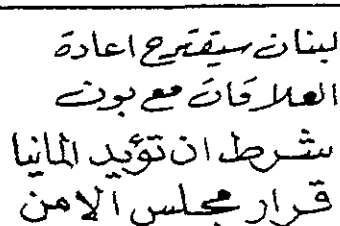 لبنان سيقترح اعادة
العلاقات مع بون
شرط ان تؤيد المانيا
قرار مجلس الامن